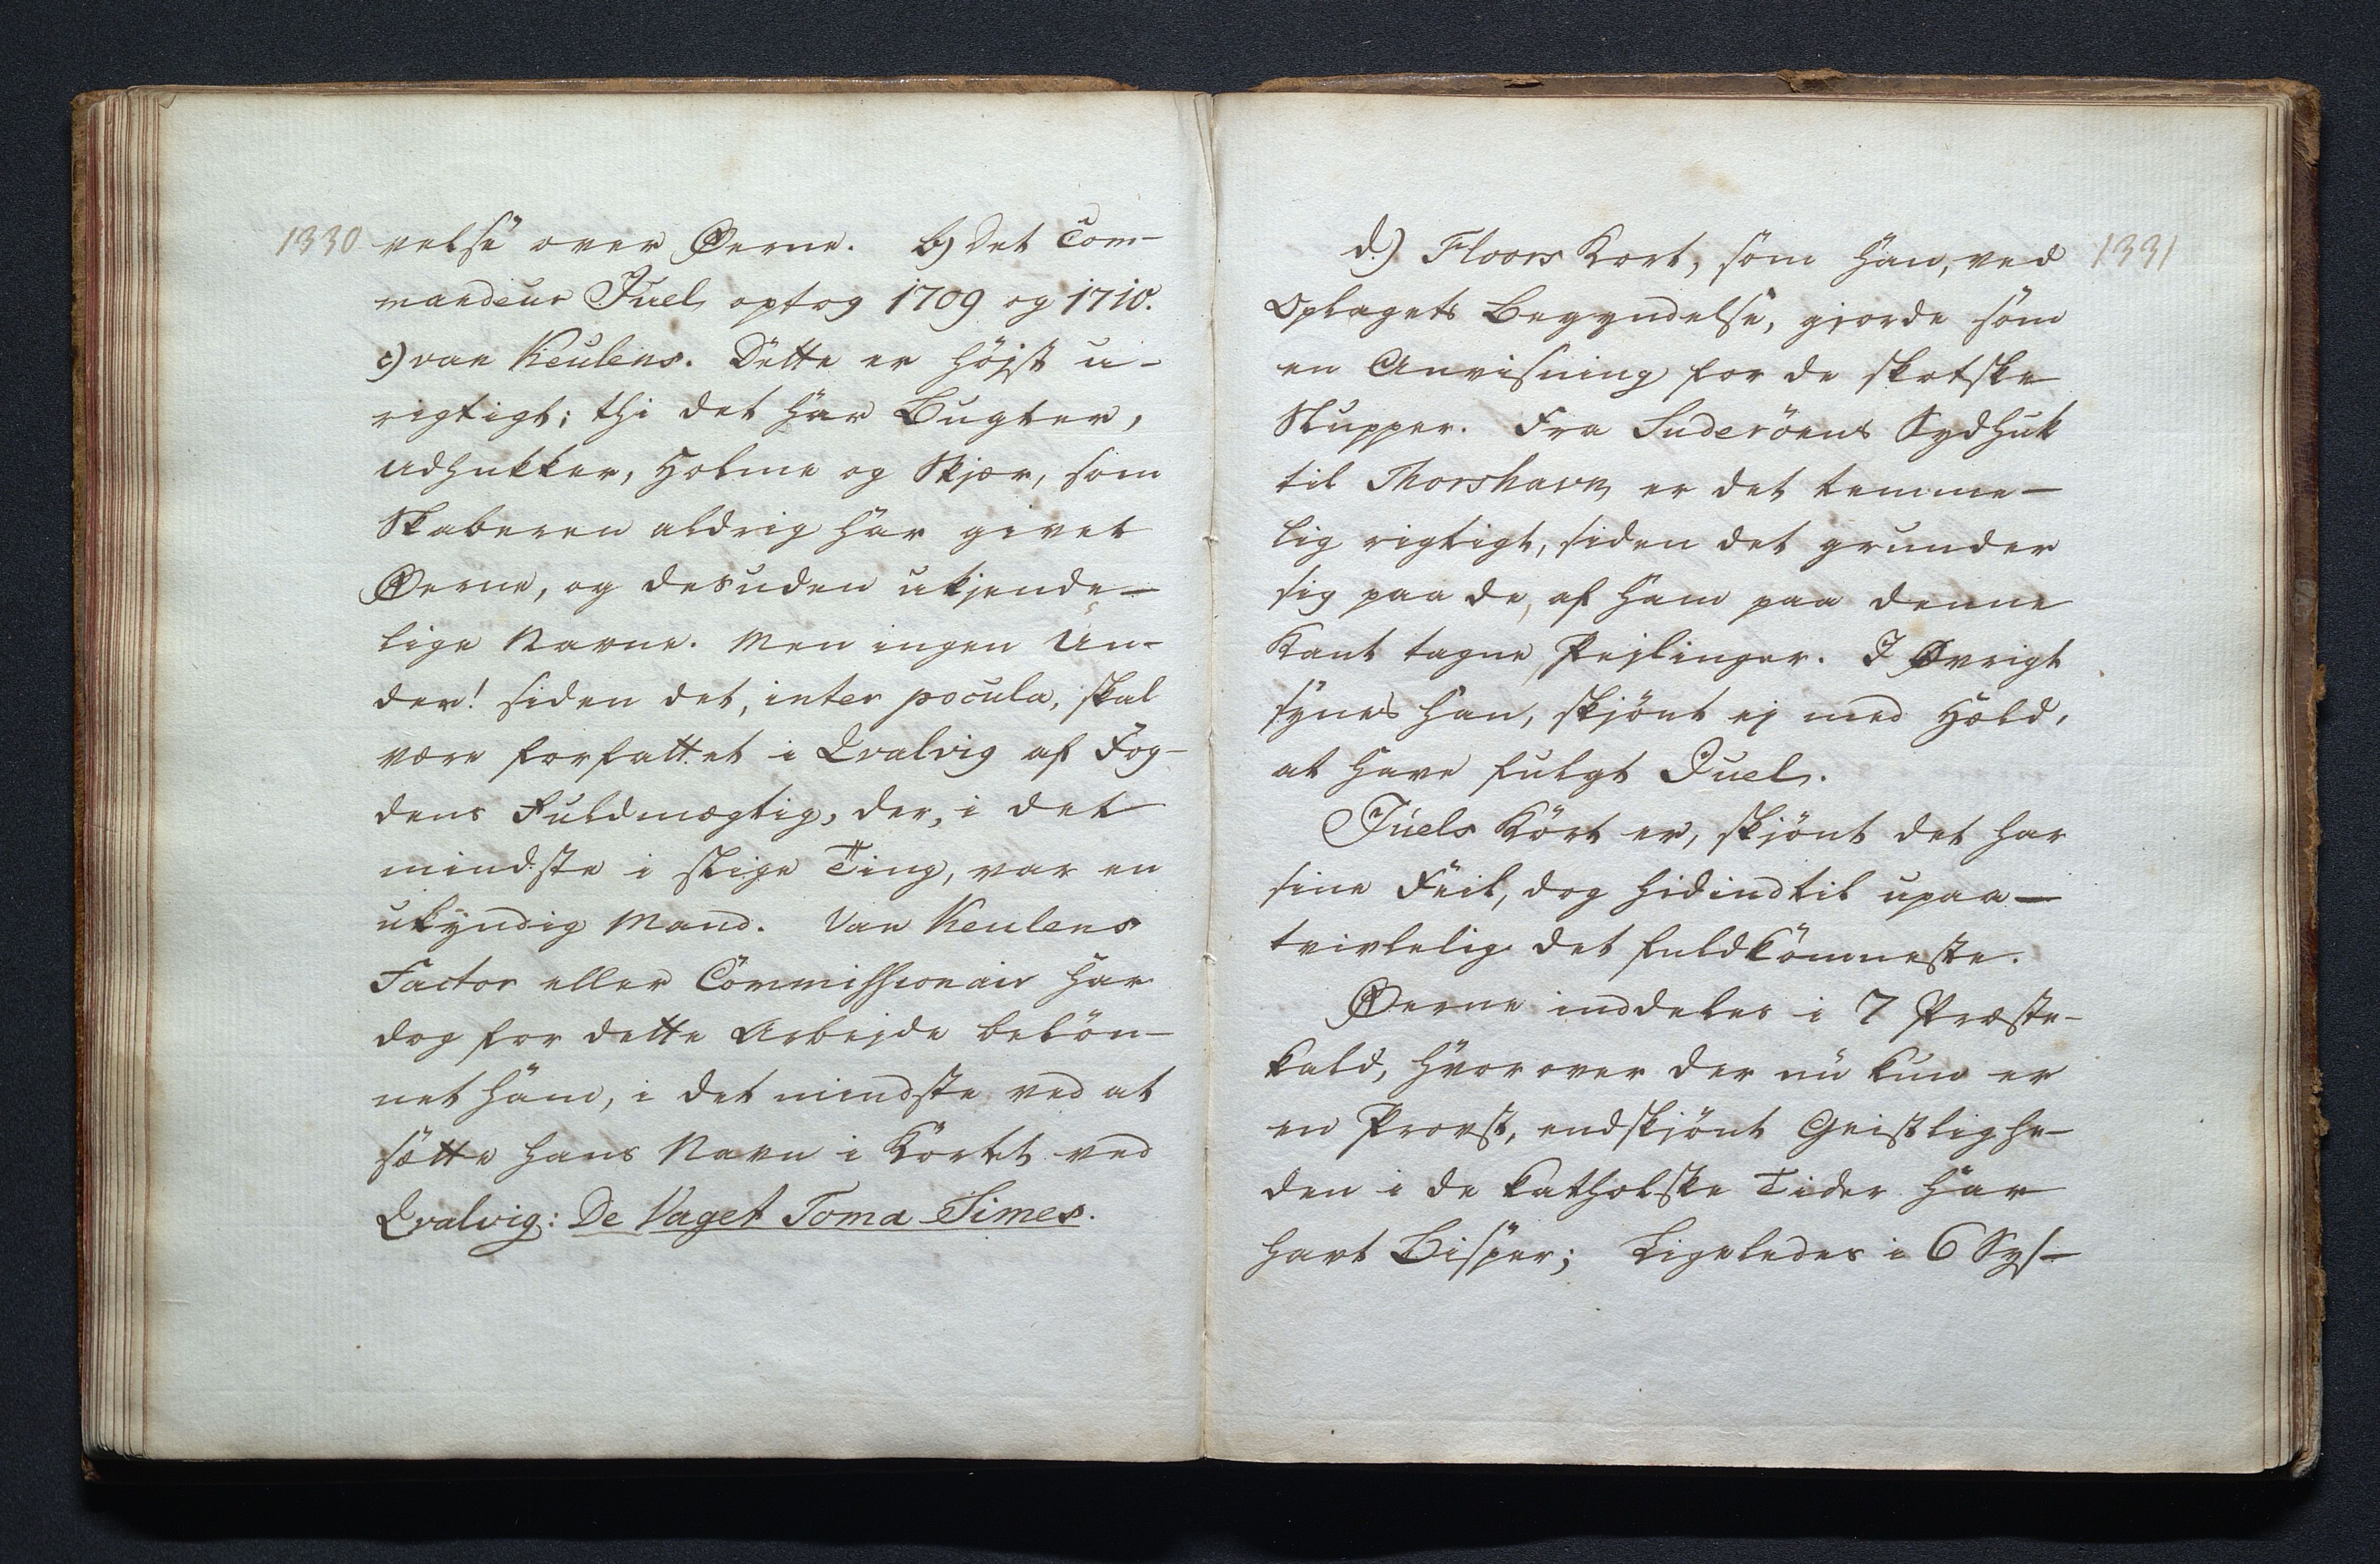 1330
velse over Øerne. b) Det Com-
mandeur Juel optog 1709 og 1710.
c) van Keulens. Dette er højst u-
rigtigt; thi det har Bugter,
Udhukker, Holme og Skjær, som
Skaberen aldrig har givet
Øerne, og desuden ukjende-
lige Navne. Men ingen Un-
der! siden det, inter pocula, skal
være forfattet i Qvalvig af Fog-
dens Fuldmægtig, der, i det
mindste i slige Ting, var en
ukyndig Mand. Van Keulens
Factor eller Commissionair har
dog for dette Arbejde belön-
net ham, i det mindste ved at
sætte hans Navn i Kortet ved
Qvalvig: De Vaget Toma Simes.
1331
d.) Floors Kort, som han, ved
Oplagets Begyndelse, gjorde som
en Anvisning for de skotske
Slupper. Fra Suderöens Sydhuk
til Thorshavn er det temme-
lig rigtigt, siden det grunder
sig paa de, af ham paa denne
Kant tagne Pejlinger. I Øvrigt
synes han, skjönt ej med Hæld,
at have fulgt Juel.
Juels Kort er, skjönt det har
sine Feil, dog hidindtil upaa-
tvivlelig det fuldkomneste.
Øerne inddeles i 7 Præste-
kald, hvorover der nu kun er
en Provst, endskjönt Geistlighe-
den i de katholske Tider har
havt Bisper; Ligeledes i 6 Sys-